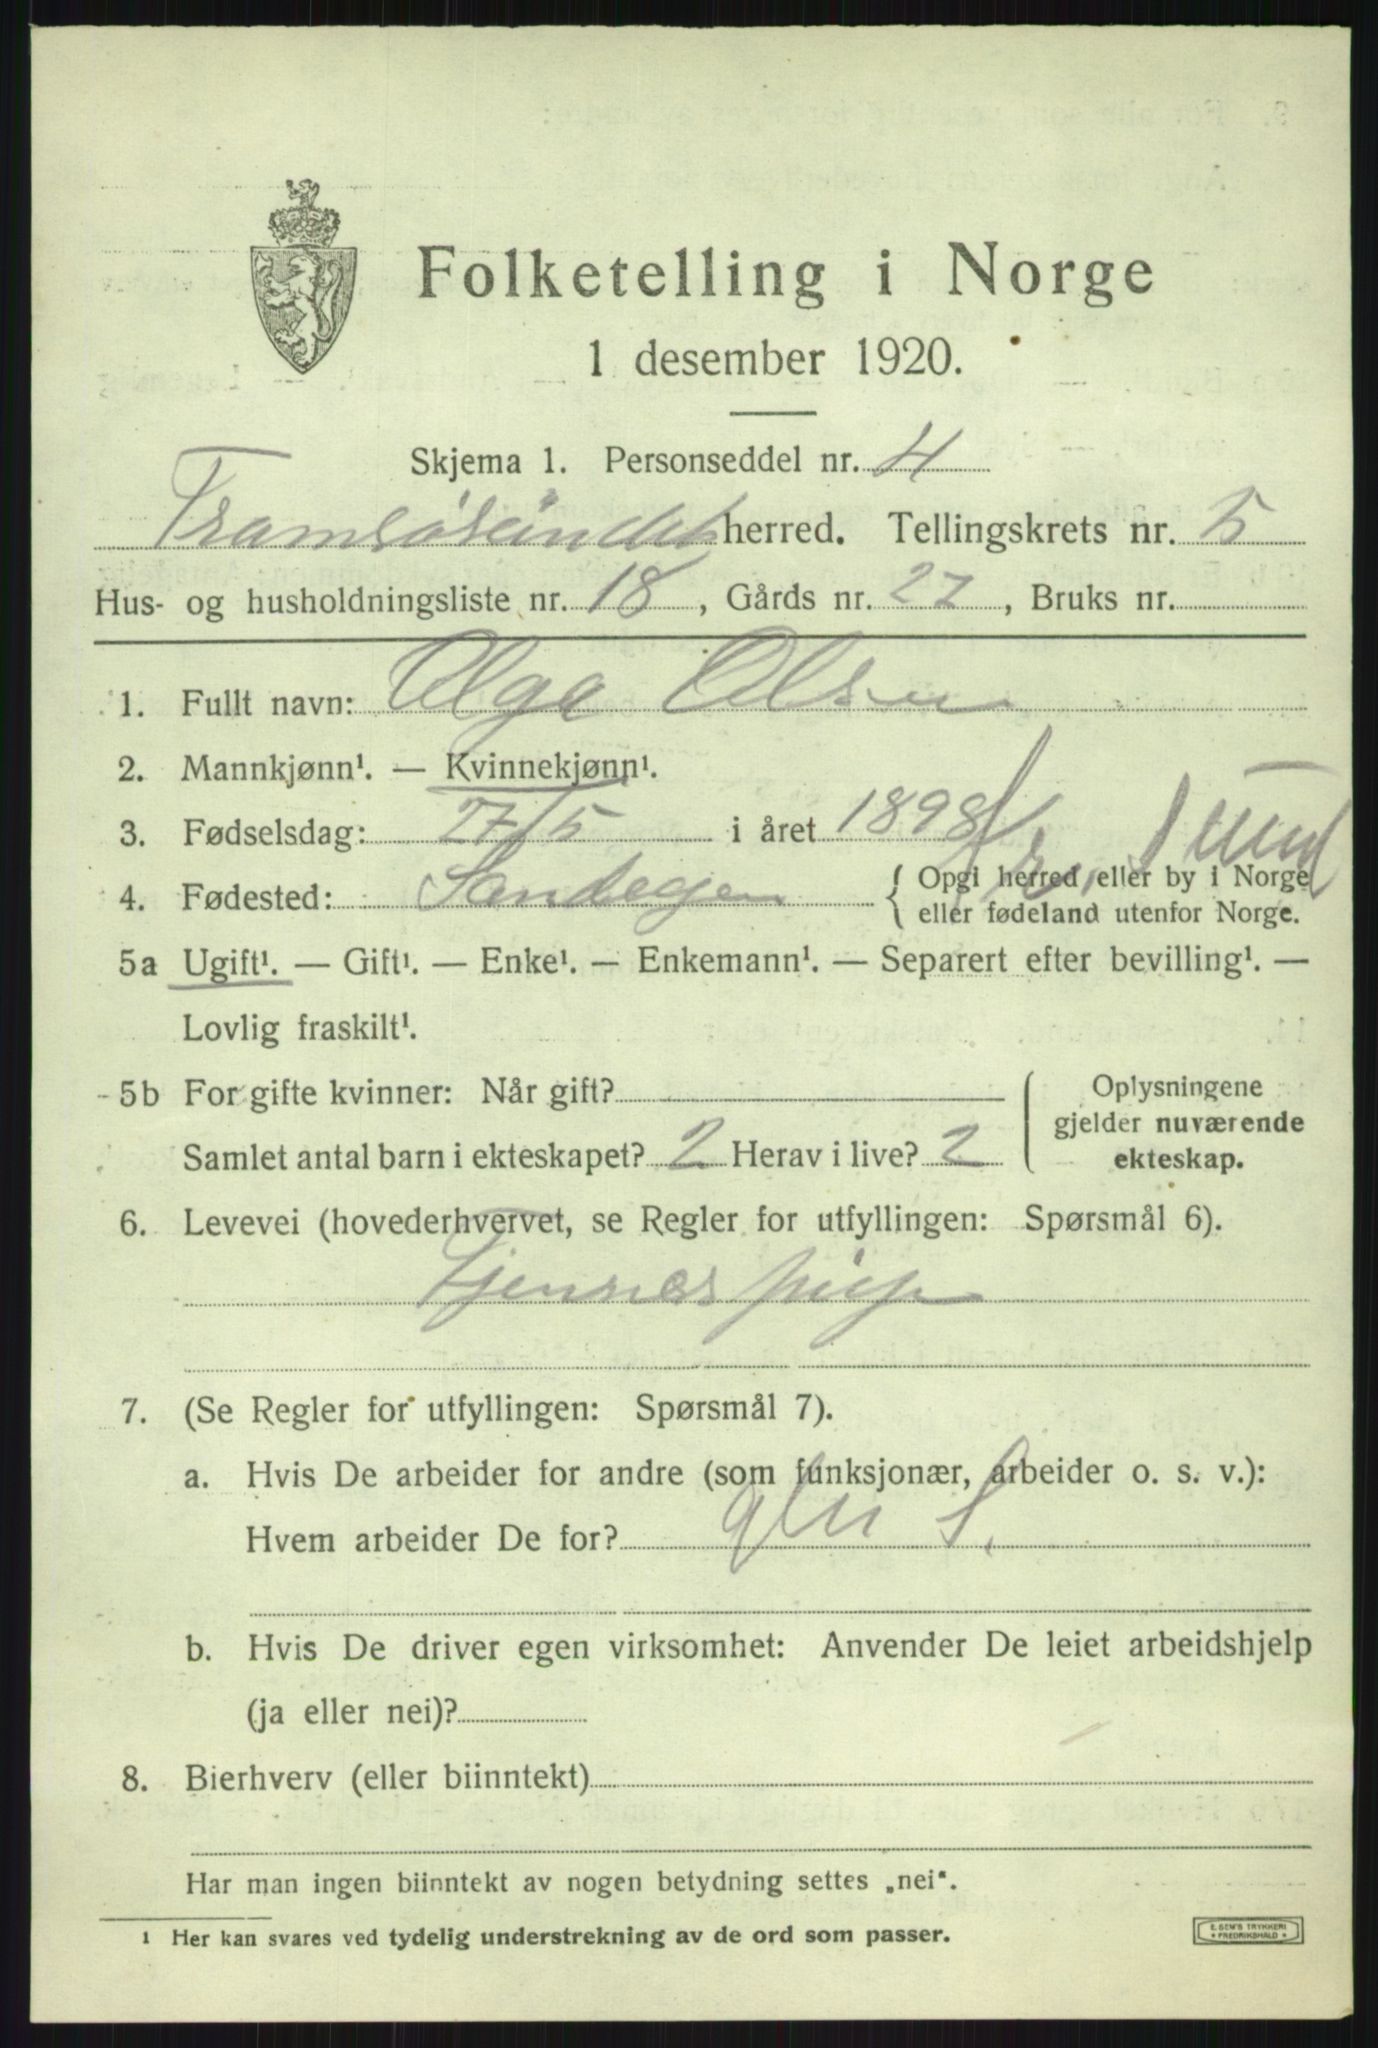 Folketelling i Norge
1 desember 1920.
Skjema 1. Personseddel nr. 4
Tromsøsundet herred. Tellingskrets nr. 5
Hus- og husholdningsliste nr. 18, Gårds nr. 27, Bruks nr.
1. Fullt navn: Olga Olsen
2. Mannkjønn¹. — Kvinnekjønn¹.
3. Fødselsdag: 27/5 i året 1898
4. Fødested: { Opgi herred eller by i Norge
eller fødeland utenfor Norge.
5a Ugift¹. — Gift¹. — Enke¹. — Enkemann¹. — Separert efter bevilling¹. —
Lovlig fraskilt¹.
5b For gifte kvinner: Når gift? { Oplysningene
gjelder nuværende
Samlet antal barn i ekteskapet? 2 Herav i live? 2 ekteskap.
6. Levevei (hovederhvervet, se Regler for utfyllingen: Spørsmål 6).
7. (Se Regler for utfyllingen: Spørsmål 7).
a. Hvis De arbeider for andre (som funksjonær, arbeider o. s. v.):
Hvem arbeider De for?
b. Hvis De driver egen virksomhet: Anvender De leiet arbeidshjelp
(ja eller nei)?
8. Bierhverv (eller biinntekt)
Har man ingen biinntekt av nogen betydning settes „nei“.
¹ Her kan svares ved tydelig understrekning av de ord som passer.
E. SEM'S TRYKKERI
* FREDRIKSHALD *